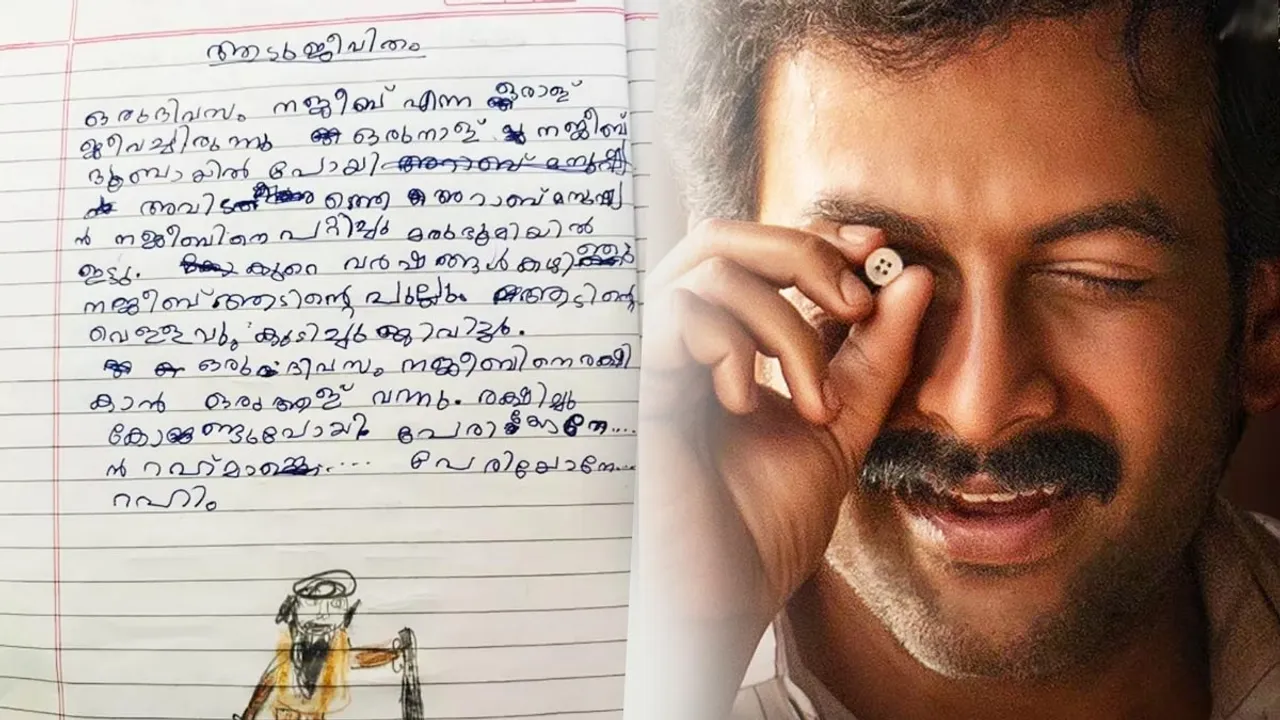 ആടുജീവിതം
ഒരുദിവസം നജീബ് എന്ന ഒരാള്
ജീവച്ചിരുന്നു ഒരുനാള് നജീബ്
ദുബായിൽ പോയി അറാബ് മനുഷ്യ
അവിട ഒരു അറാബ് മനുഷ്യ
ൻ നജീബിനെ പറ്റിച്ചു മരുഭൂമിയിൽ
ഇട്ടു. കുറെ വർഷങ്ങൾ കഴി
നജീബ് ആടിന്റെ പുല്ലും ആടിന്റെ
വെള്ളവും കുടിച്ചു ജീവിച്ചു.
ഒരു ദിവസം നജീബിനെ രക്ഷി
കാൻ ഒരു ആള് വന്നു. രക്ഷിച്ചു
കോണ്ടുപോയി പേരിയോനേ....
ൻ റഹ്മാ..... പേരിയോനേ...
റഹിം